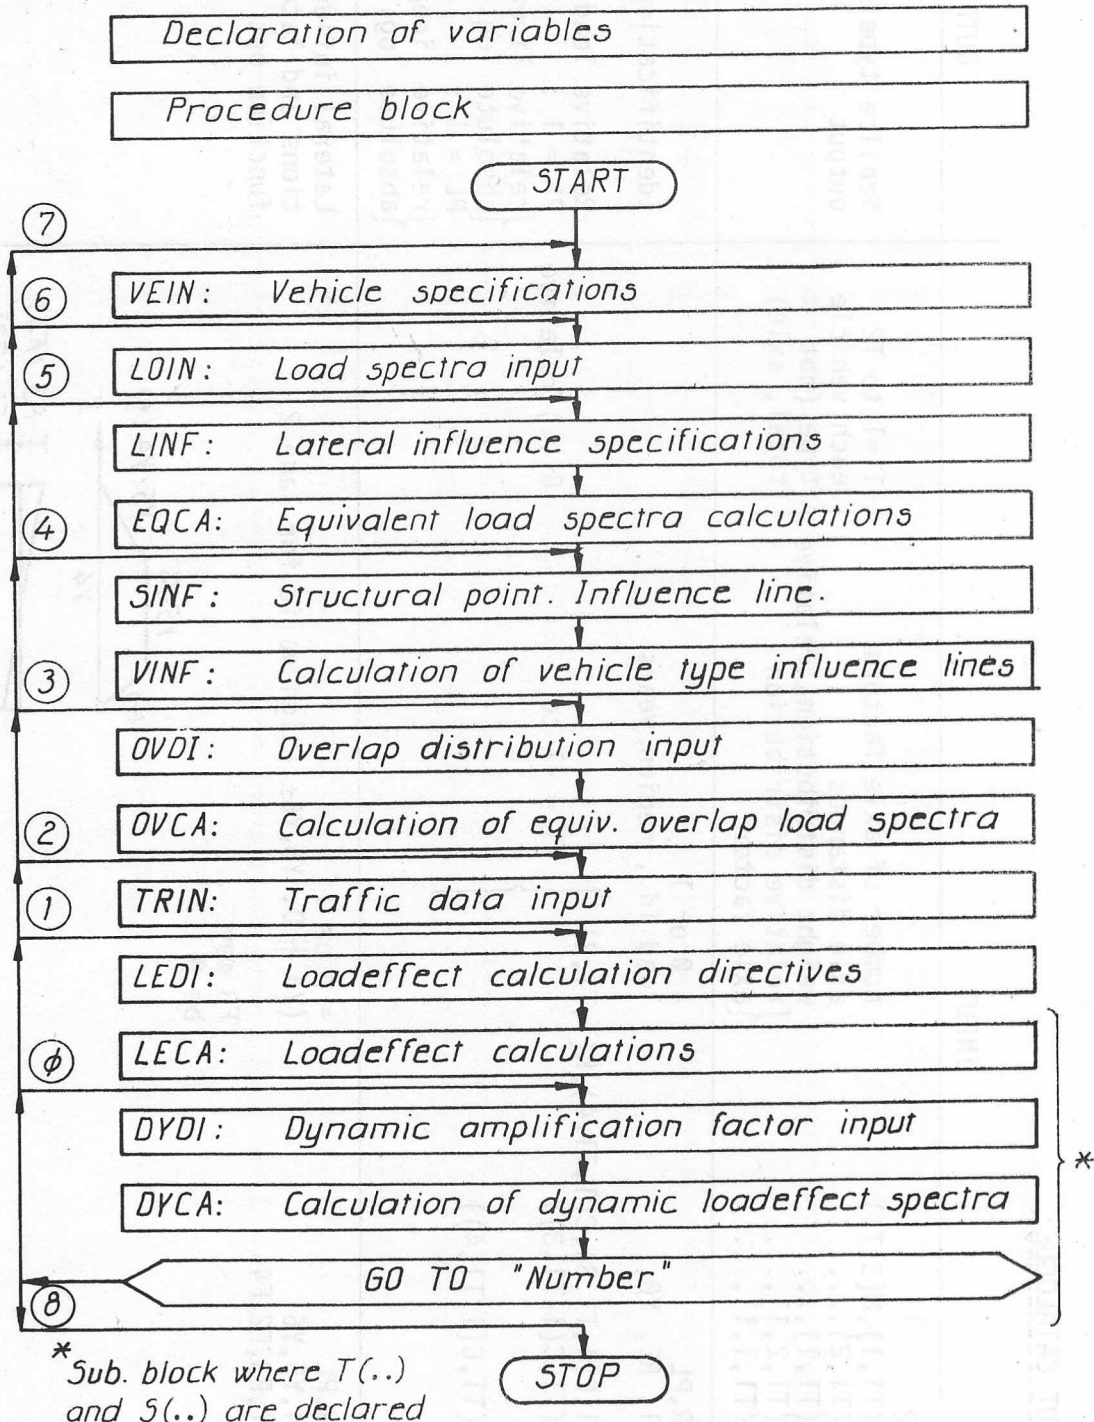 Declaration of variables
Procedure block
START
7
6
VEIN: Vehicle specifications
5
LOIN: Load spectra input
LINF: Lateral influence specifications
4
EQCA: Equivalent load spectra calculations
SINF: Structural point. Influence line.
3
VINF: Calculation of vehicle type influence lines
OVDI: Overlap distribution input
2
OVCA: Calculation of equiv. overlap load spectra
1
TRIN: Traffic data input
LEDI: Loadeffect calculation directives
ϕ
LECA: Loadeffect calculations
DYDI: Dynamic amplification factor input
*
DYCA: Calculation of dynamic loadeffect spectra
GO TO "Number"
8
STOP
* Sub. block where T(..)
and S(..) are declared